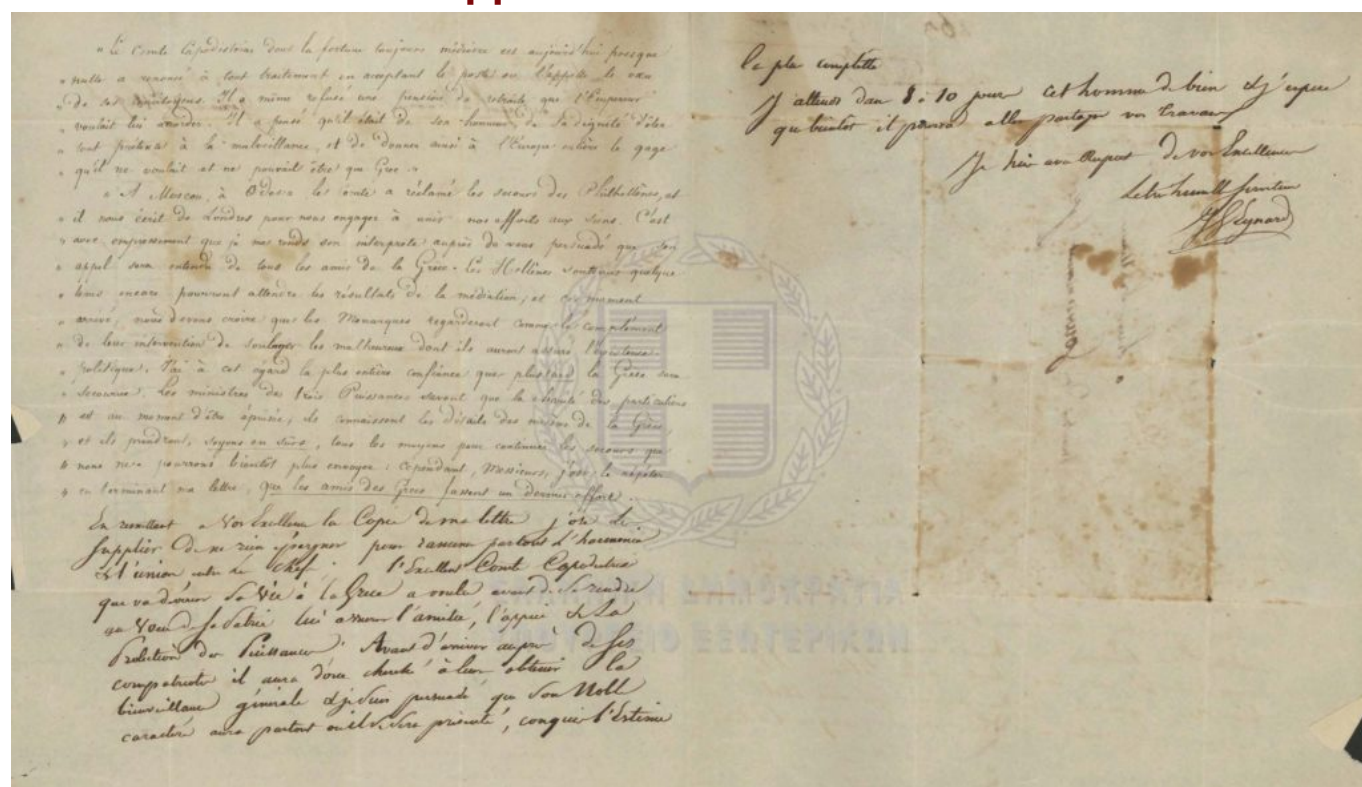 « Le Comte Capodistrias dont la fortune toujours médiocre est aujourd'hui presque
» nulle a renoncé à tout traitement en acceptant le poste où l'appelle le vœu
» de ses concitoyens. Il a même refusé une pension de retraite que l'Empereur
» voulait lui accorder. Il a pensé qu'il était de son honneur, de sa dignité d'ôter
» tout prétexte à la malveillance, et de donner ainsi à l'Europe entière le gage
» qu'il ne voulait et ne pouvait être que Grec. »
« A Moscou, à Odessa le Comte a réclamé les secours des Philhellènes, et
» il nous écrit de Londres pour nous engager à unir nos efforts aux siens. C'est
» avec empressement que je me rends son interprète auprès de vous persuadé que son
» appel sera entendu de tous les amis de la Grèce. Les Hellènes soutenus quelque
» tems encore pourront attendre les résultats de la médiation, et ce moment
» arrivé, nous devons croire que les Monarques regarderont comme le complément
» de leur intervention de soulager les malheureux dont ils auront assuré l'existence
» politique. J'ai à cet égard la plus entière confiance que plus tard la Grèce sera
» secourue. Les ministres des trois Puissances savent que la charité des particuliers
» est au moment d'être épuisée, ils connaissent les détails des misères de la Grèce,
» et ils prendront, soyons en sûrs, tous les moyens pour continuer les secours que
» nous ne pourrons bientôt plus envoyer : Cependant, Messieurs, j'ose le répéter
» en terminant ma lettre, que les amis des Grecs fassent un dernier effort.
En remettant a Vos Excellence la Copie de ma lettre j'ose le
supplier de ne rien épargner pour ramener partout l'harmonie
& l'union entre les chefs. l'Excellent Comte Capodistria
que va dévouer sa Vie à la Grece a voulu avant de se rendre
au Vœu de sa Patrie lui assurer l'amitié, l'appui & La
Protection des Puissances. Avant d'arriver auprès de ses
compatriotes il aura donc cherché à leur obtenir la
bienveillance générale & je suis persuadé que son Noble
caractère aura partout où il se sera présenté, conquis l'Estime
la plus complette
J'attends dans 8 à 10 jours cet homme de bien & j'espere
que bientot il pourra aller partager vos travaux
Je suis avec Respect De vos Excellences
Le tres humble serviteur
Eynard
ΕΛΛΗΝΙΚΗ ΔΗΜΟΚΡΑΤΙΑ
ΥΠΟΥΡΓΕΙΟ ΕΞΩΤΕΡΙΚΩΝ